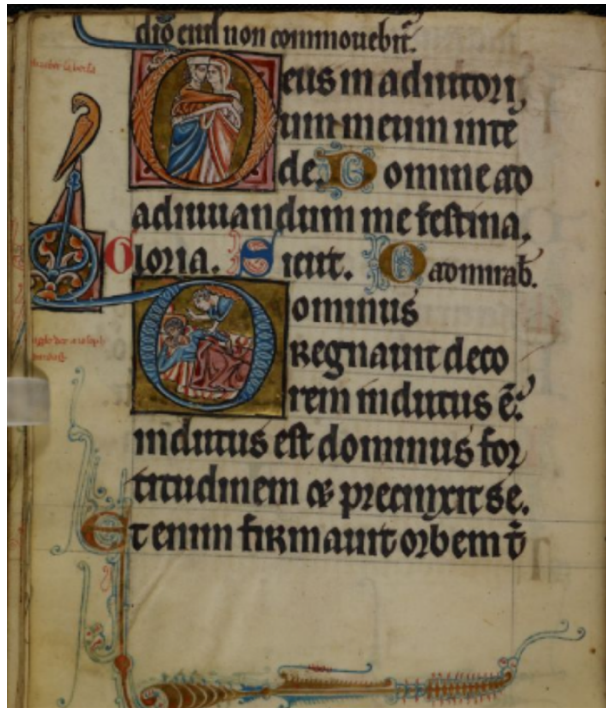 dio eiul non commouebit̄.
Deus in adiutori
um meum inte
de. Domine ad
adiuuandum me festina.
Gloria. Sicut. G admirab.
Dominus
regnauit deco
rem indutus ē:
indutus est dominus for
titudinem & precinxit se.
Etenim firmauit orbem t̄